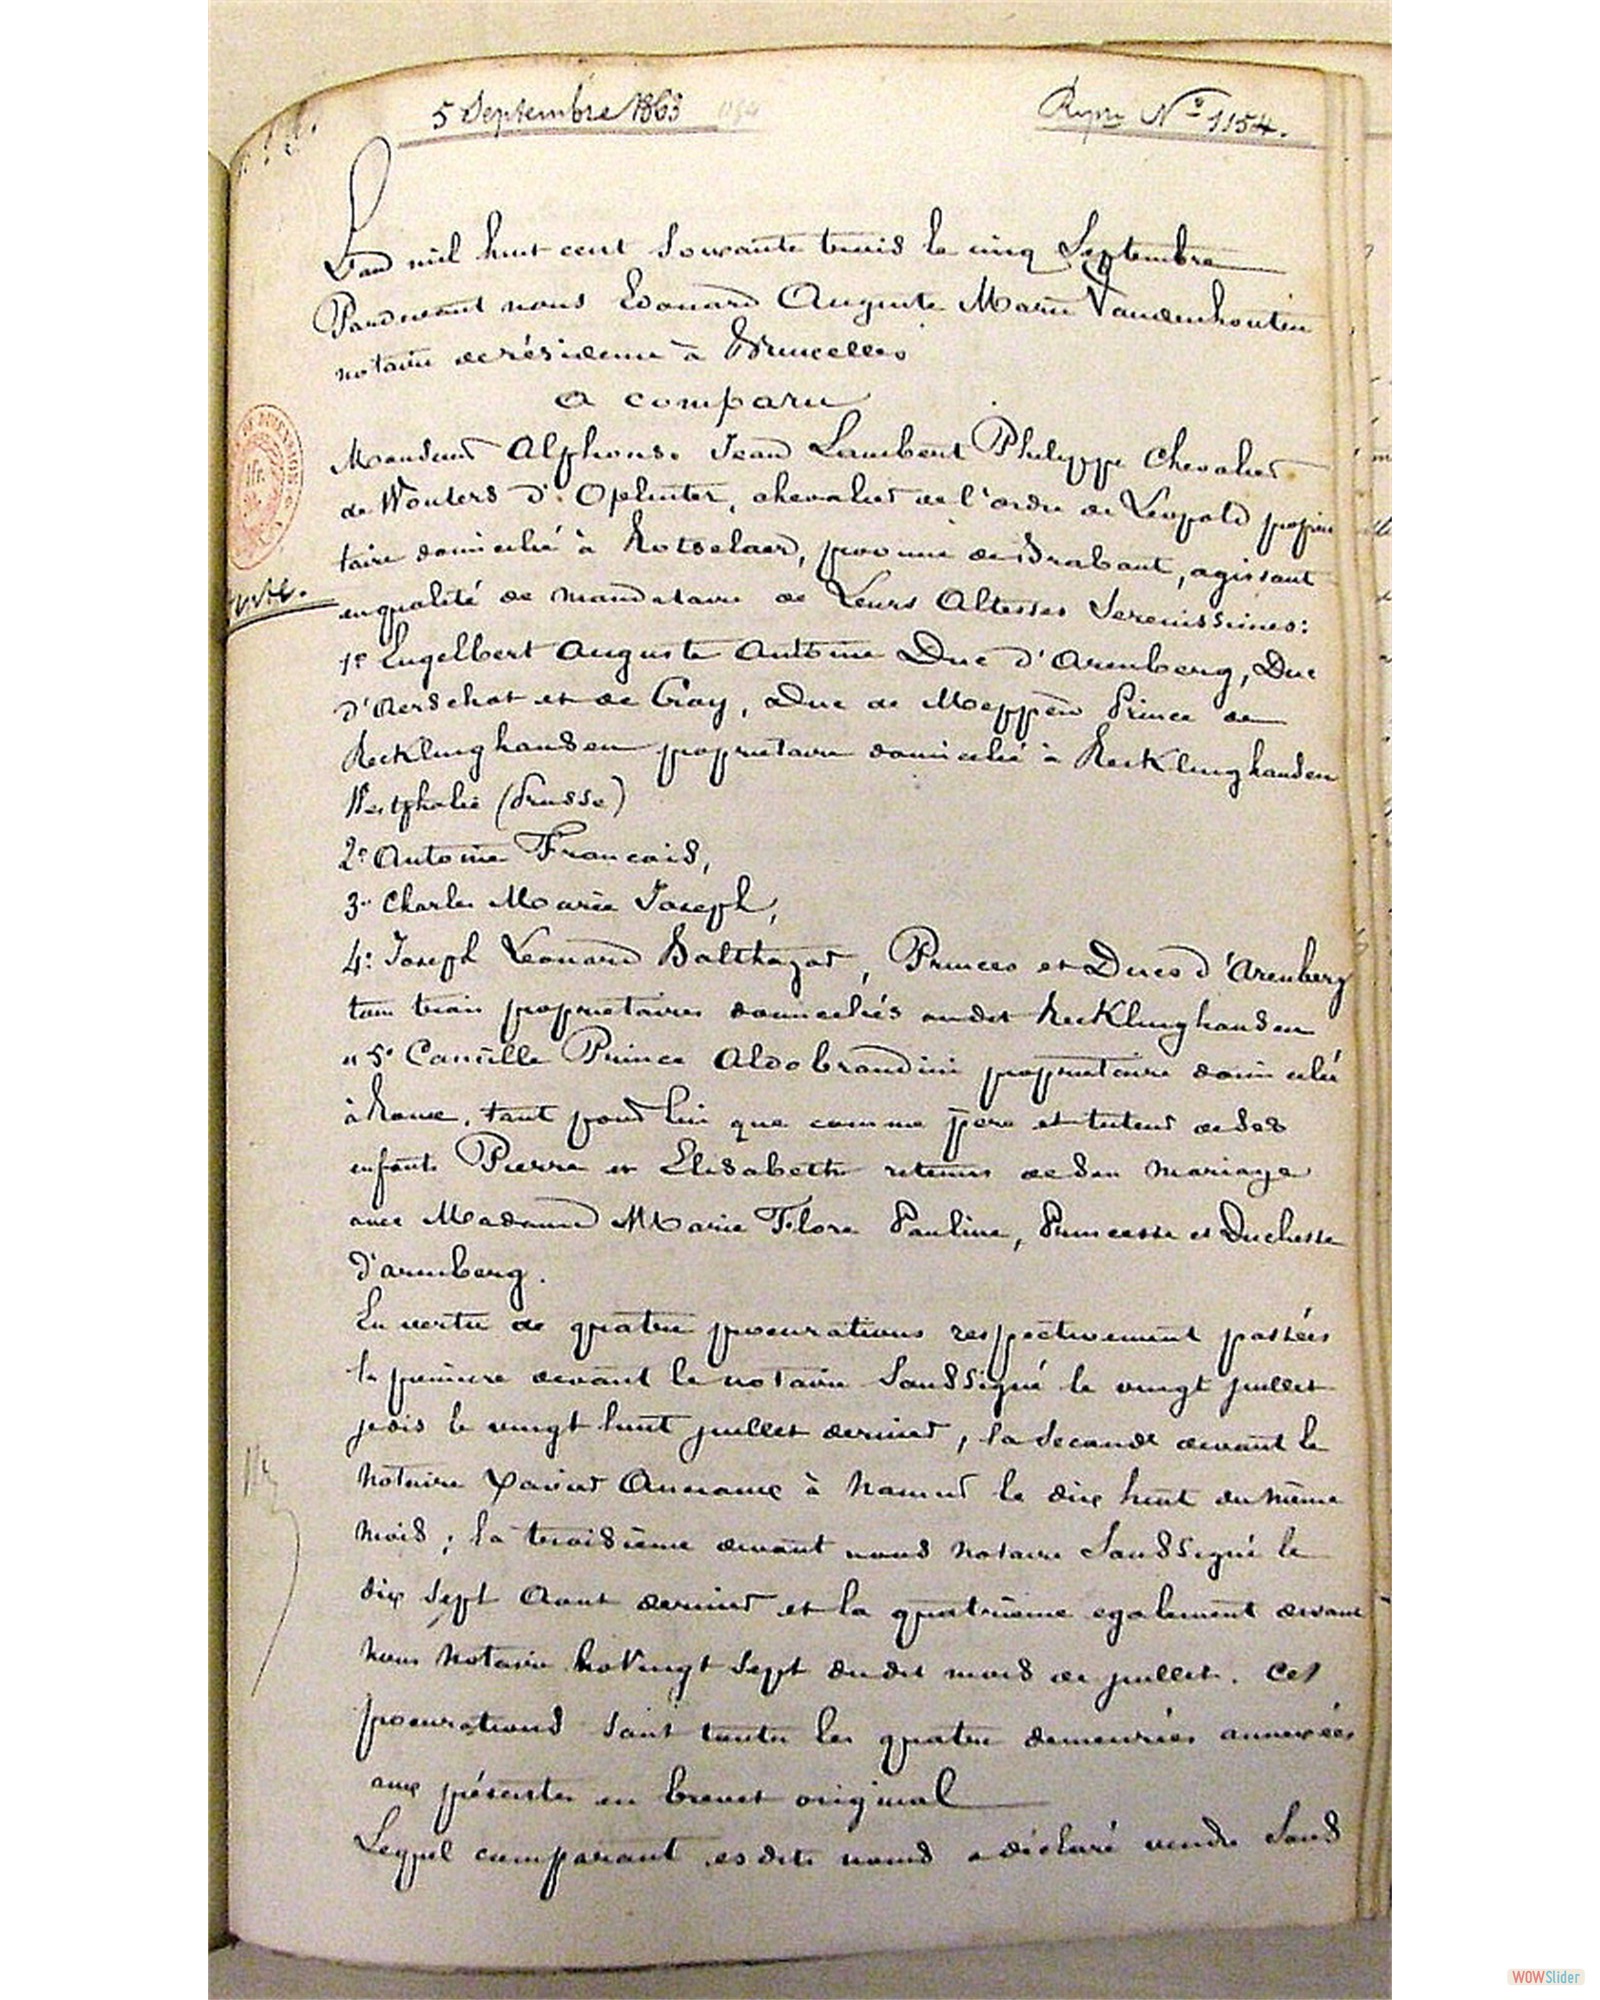 5 Septembre 1863
Repre No 1154.
L'an mil huit cent soixante trois le cinq Septembre
Pardevant nous Edouard Auguste Marie Vandenhouten
notaire de résidence à Bruxelles
a comparu
Monsieur Alphonse Jean Lambert Philippe Chevalier
de Wouters d'Oplinter, chevalier de l'ordre de Léopold proprié
taire domicilié à Rotselaer, province de Brabant, agissant
en qualité de mandataire de Leurs Altesses Serenissimes:
1º Engelbert Auguste Antoine Duc d'Arenberg, Duc
d'Aerschot et de Croy, Duc de Meppen Prince de
Recklinghausen propriétaire domicilié à Recklinghausen
Westphalie (Prusse)
2º Antoine Francois,
3º Charles Marie Joseph,
4º Joseph Léonard Balthazar, Princes et Ducs d'Arenberg
tous trois propriétaires domiciliés audit Recklinghausen
et 5º Camille Prince Aldobrandini propriétaire domicilié
à Rome, tant pour lui que comme père et tuteur de ses
enfants Pierre et Elisabeth retenus de son mariage
avec Madame Marie Flore Pauline, Princesse et Duchesse
d'arenberg.
En vertu de quatre procurations respectivement passées
la première devant le notaire Soussigné le vingt juillet
puis le vingt huit juillet dernier, la Seconde devant le
notaire Xavier à Namur le dix huit du même
mois; la troisième devant nous notaire Soussigné le
dix Sept Aout dernier et la quatrième egalement devant
nous notaire Vingt Sept dudit mois de juillet. Ces
procurations sont toutes les quatre demeurées annexées
aux présentes en brevet original
Lequel comparant es dits noms a déclaré vendre Sous
WOWSlider